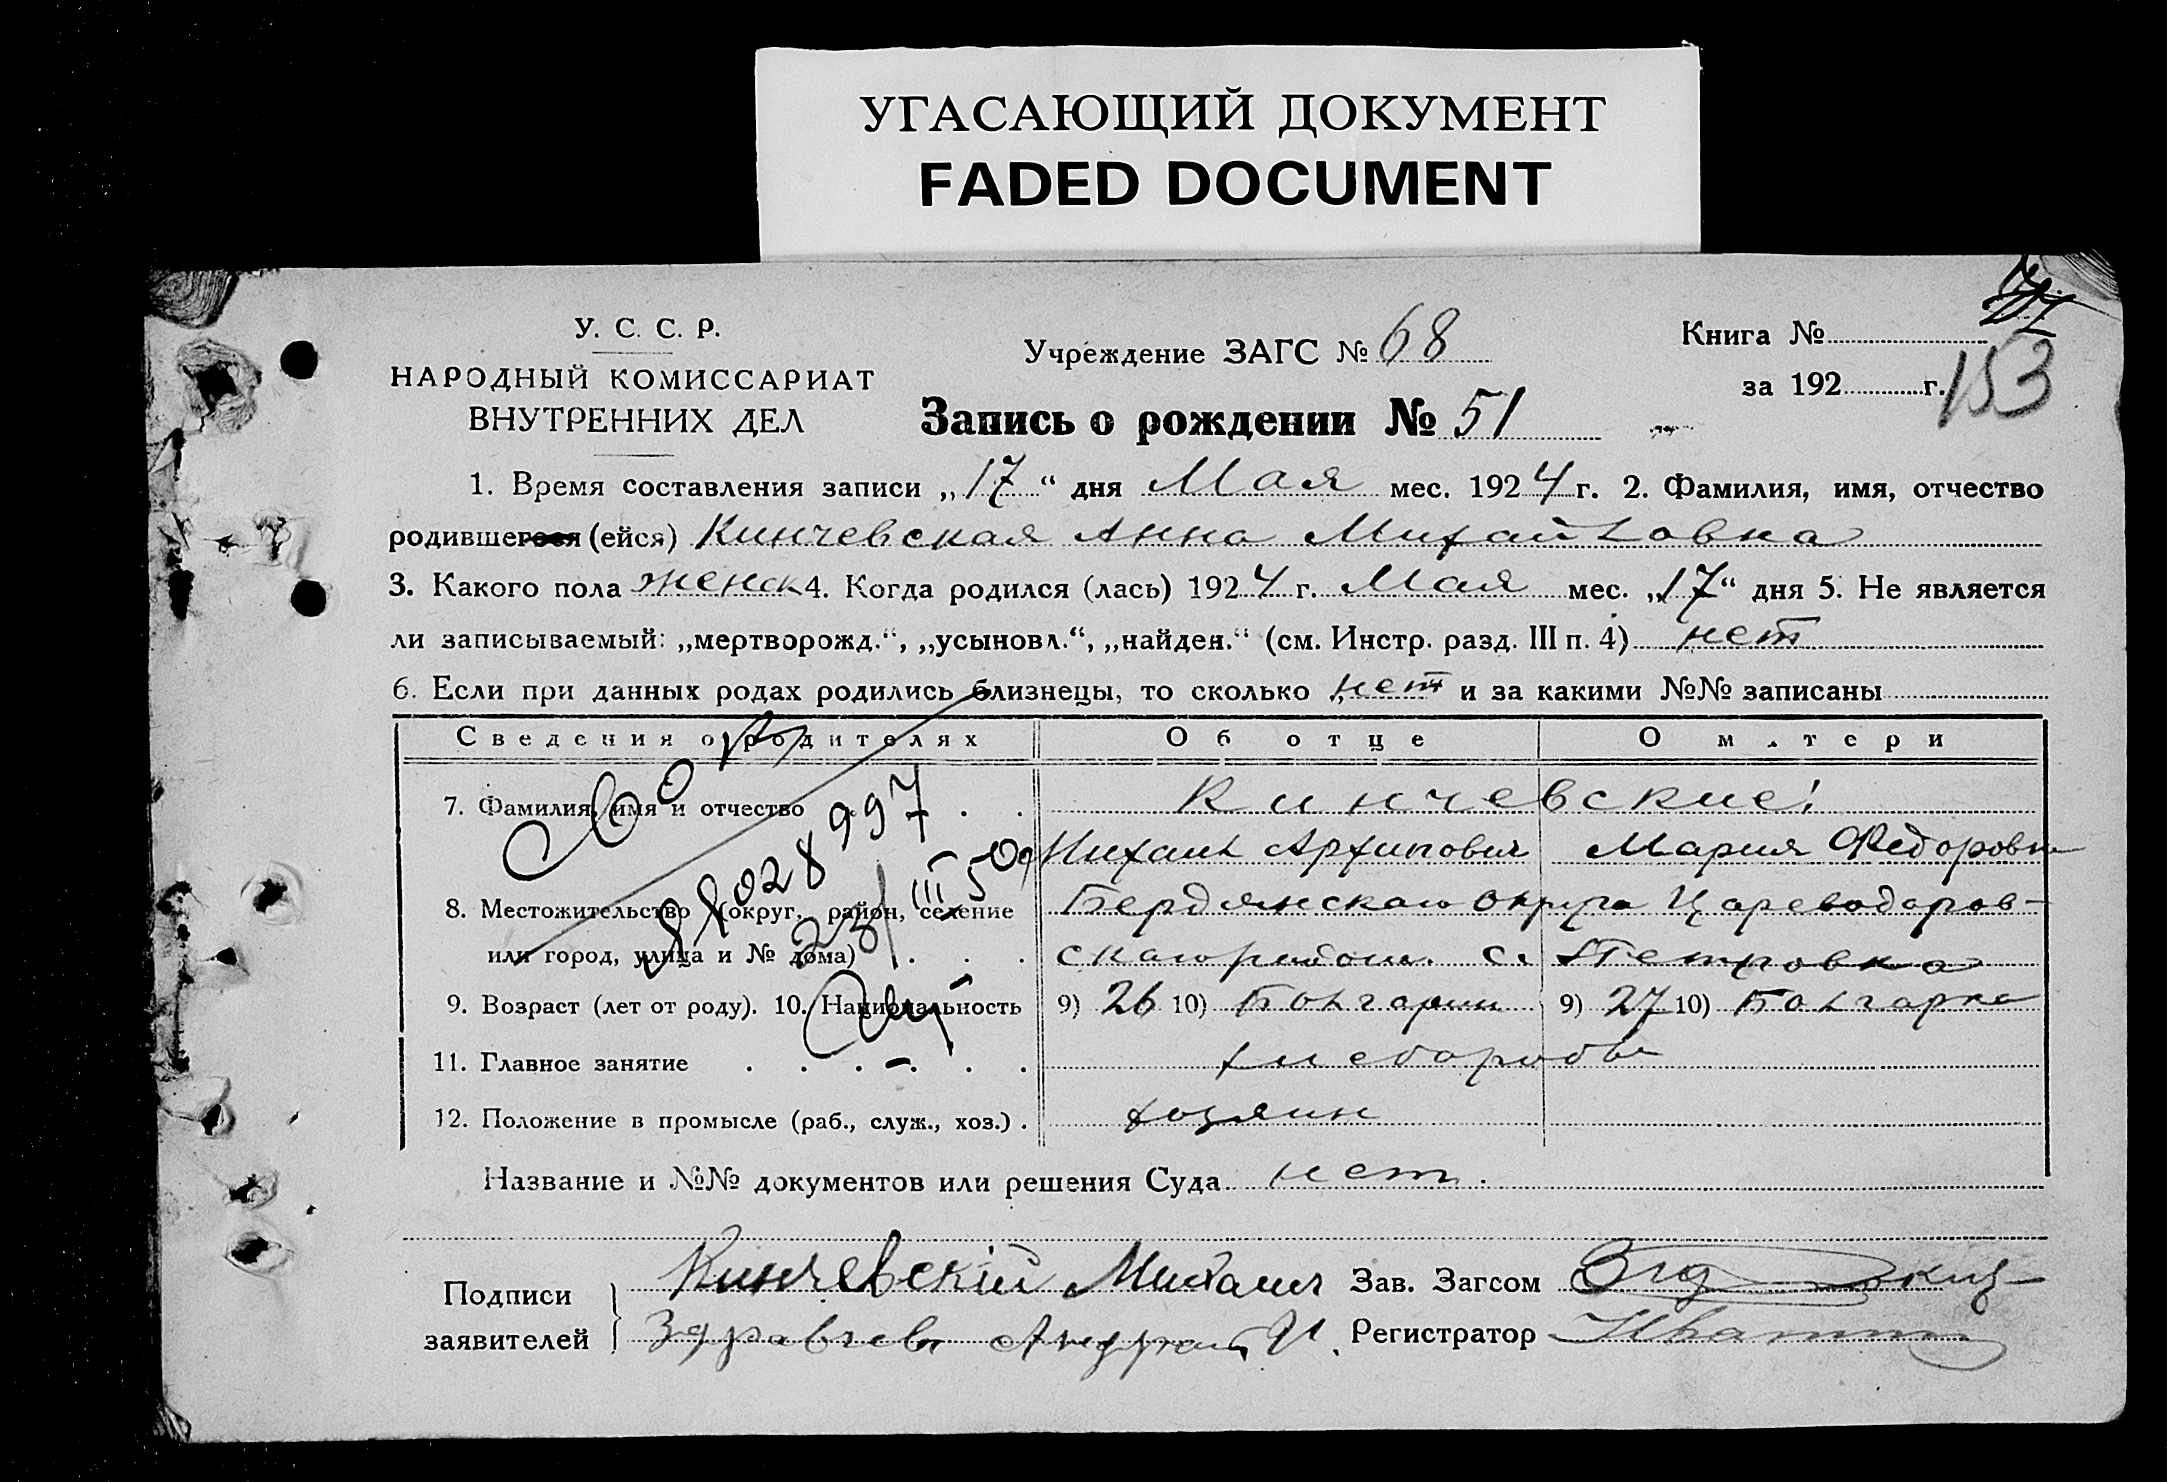 УГАСАЮЩИЙ ДОКУМЕНТ
FADED DOCUMENT
У. С. С. Р.
НАРОДНЫЙ КОМИССАРИАТ
ВНУТРЕННИХ ДЕЛ
Учреждение ЗАГС № 68
Книга №
за 192 г.
153
Запись о рождении № 51
1. Время составления записи „17“ дня Мая мес. 1924 г. 2. Фамилия, имя, отчество
родившегося (ейся) Кинчевская Анна Михайловна
3. Какого пола женск 4. Когда родился (лась) 1924 г. Мая мес. „17“ дня 5. Не является
ли записываемый: „мертворожд.“, „усыновл.“, „найден.“ (см. Инстр. разд. III п. 4) нет
6. Если при данных родах родились близнецы, то сколько нет и за какими №№ записаны
Сведения о родителях Об отце О матери
7. Фамилия, имя и отчество Кинчевские
Михаил Архипович Мария Федоровна
8. Местожительство (округ, район, селение Бердянского округа Цареводаров-
или город, улица и № дома) ского района с. Петровка
9. Возраст (лет от роду). 10. Национальность 9) 26 10) Болгарин 9) 27 10) Болгарка
11. Главное занятие хлебаробы
12. Положение в промысле (раб., служ., хоз.) хозяин
Название и №№ документов или решения Суда нет.
Подписи заявителей
Кинчевскій Михаил Зав. Загсом
Здравчев Андрей И. Регистратор